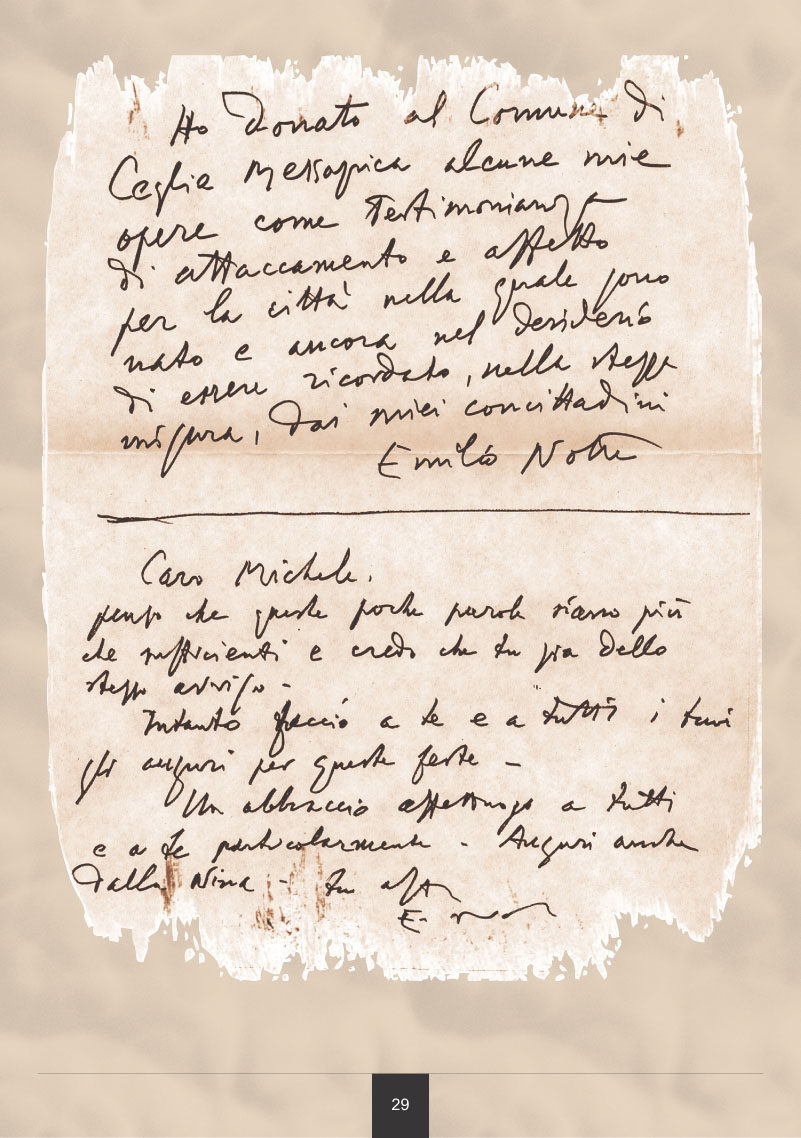 Ho Donato al Comune di
Ceglie Messapica alcune mie
opere come Testimonianza
di attaccamento e affetto
per la città nella quale sono
nato e ancora nel desiderio
di essere ricordato, nella stessa
misura, dai miei concittadini
Emilio Notte
Caro Michele,
penso che queste poche parole siano più
che sufficienti e credo che tu sia dello
stesso avviso -
Intanto faccio a te e a tutti i tuoi
gli auguri per queste feste -
Un abbraccio affettuoso a tutti
e a te particolarmente - Auguri anche
dalla Nina - tuo aff
E.
29